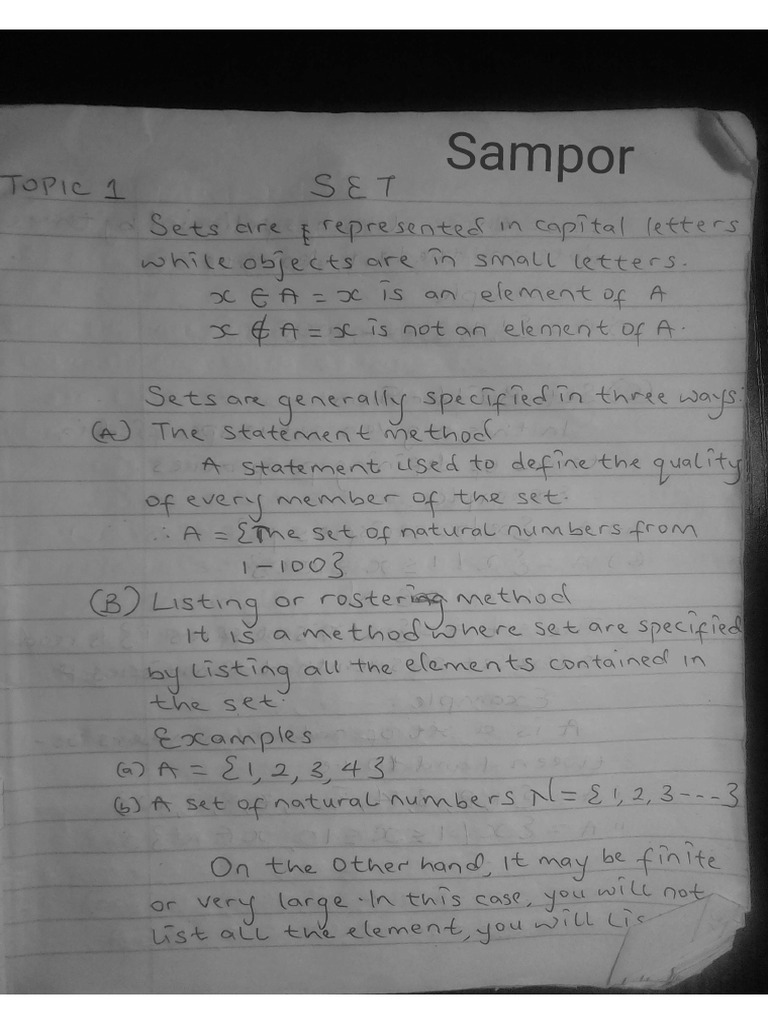 Sampor
TOPIC 1 SET
Sets are represented in capital letters
while objects are in small letters.
x ∈ A = x is an element of A
x ∉ A = x is not an element of A.
Sets are generally specified in three ways:
(A) The statement method
A statement used to define the quality
of every member of the set.
∴ A = {The set of natural numbers from
1-100}
(B) Listing or rostering method
It is a method where set are specified
by listing all the elements contained in
the set.
Examples
(a) A = {1, 2, 3, 4}
(b) A set of natural numbers N = {1, 2, 3 ---}
On the other hand, it may be finite
or very large. In this case, you will not
list all the element, you will